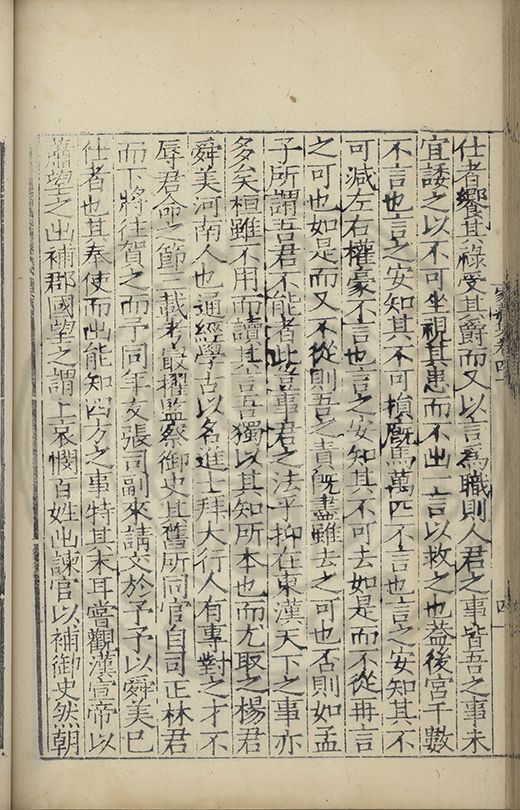 仕者饗其祿受其爵而又以言為職則人君之事皆吾之事未
宜諉之以不可坐視其患而不出一言以救之也葢後宮千數
不言也言之安知其不可損廐馬萬匹不言也言之安知其不
可减左右權豪不言也言之安知其不可去如是而不從再言
之可也如是而又不從則吾之責旣盡雖去之可也否則如孟
子所謂吾君不能者此豈事君之法乎抑在東漢天下之事亦
多矣桓雖不用而讀其言吾獨以其知所本也而尤取之楊君
舜美河南人也通經學古以名進士拜大行人有專對之才不
辱君命之節三載考最擢監察御史其舊所同官自司正林君
而下將往賀之而予同年友張司副來請文於予予以舜美已
仕者也其奉使而出能知四方之事特其末耳嘗觀漢宣帝以
蕭望之出補郡國望之謂上哀憫百姓出諫官以補御史然朝
四